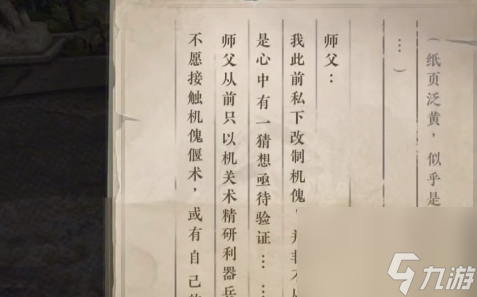 （纸页泛黄，似乎是
…）
师父：
我此前私下改制机傀，并非不
是心中有一猜想亟待验证……
师父从前只以机关术精研利器兵
不愿接触机傀偃术，或有自己
九游